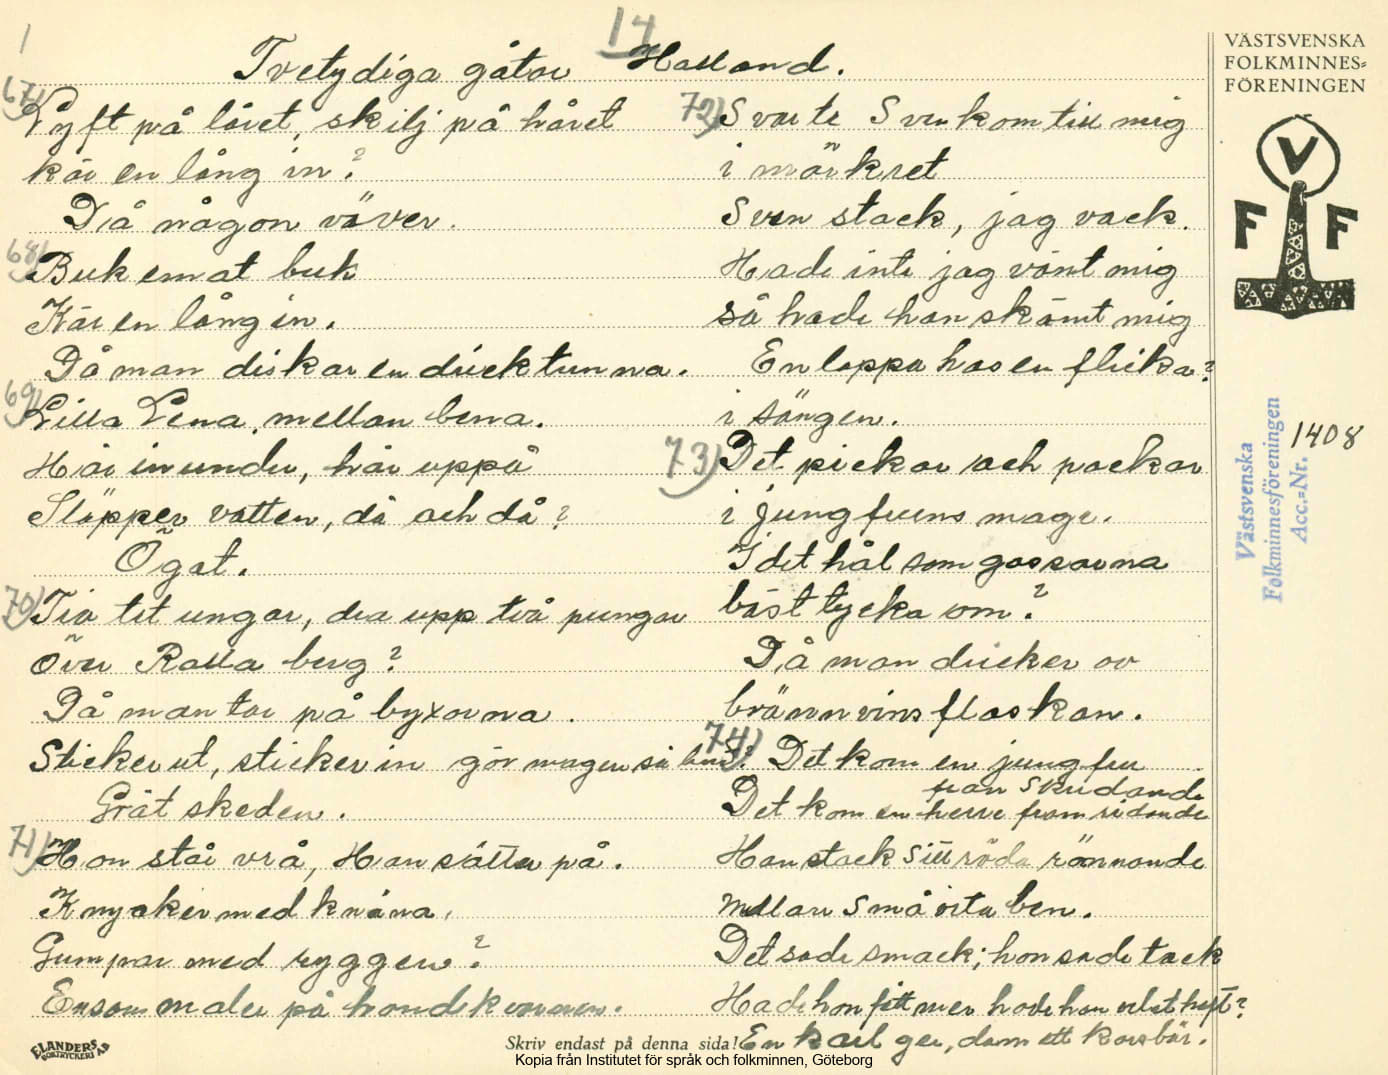 1
14
Tvetydiga gåtor Halland.
67)
Lyft på låret, skilj på håret
kör en lång in?
Då någon väver.
68)
Buk emot buk
Kör en lång in.
Då man diskar en dricktunna.
69)
Lilla Lena mellan bena.
Hår inunder, hår uppå
Släpper vatten, då och då?
Ögat.
70)
Tio tet ungar, dra upp två pungar
över Ralla berg?
Då man tar på byxorna.
Sticker ut, sticker in gör magen så
Gröt skeden.
71)
Hon står vrå, Han sätter på.
Knycker med knäna,
Gumpar med ryggen?
En som maler på handkvarnen.
72)
Svarte Sven kom till mig
i mörkret
Sven stack, jag vack.
Hade inte jag vänt mig
så hade han skämt mig
En loppa hos en flicka?
i sängen.
73)
Det pickar och packar
i jungfruns mage.
I det hål som gossarna
bäst tycka om?
Då man dricker ov
brännvinsflaskan.
74)
Det kom en jungfru
fran skridande
Det kom en herre fram ridande
Han stack sitt röda rännande
mellan små vita ben.
Det sade smack; hon sade tack
Hade hon fått mer hade hon
En karl ger, dam ett körsbär.
VÄSTSVENSKA
FOLKMINNES-
FÖRENINGEN
V
F F
Västsvenska
Folkminnesföreningen
Acc.-Nr. 1408
ELANDERS
BOKTRYCKERI A.B
Skriv endast på denna sida!
Kopia från Institutet för språk och folkminnen, Göteborg